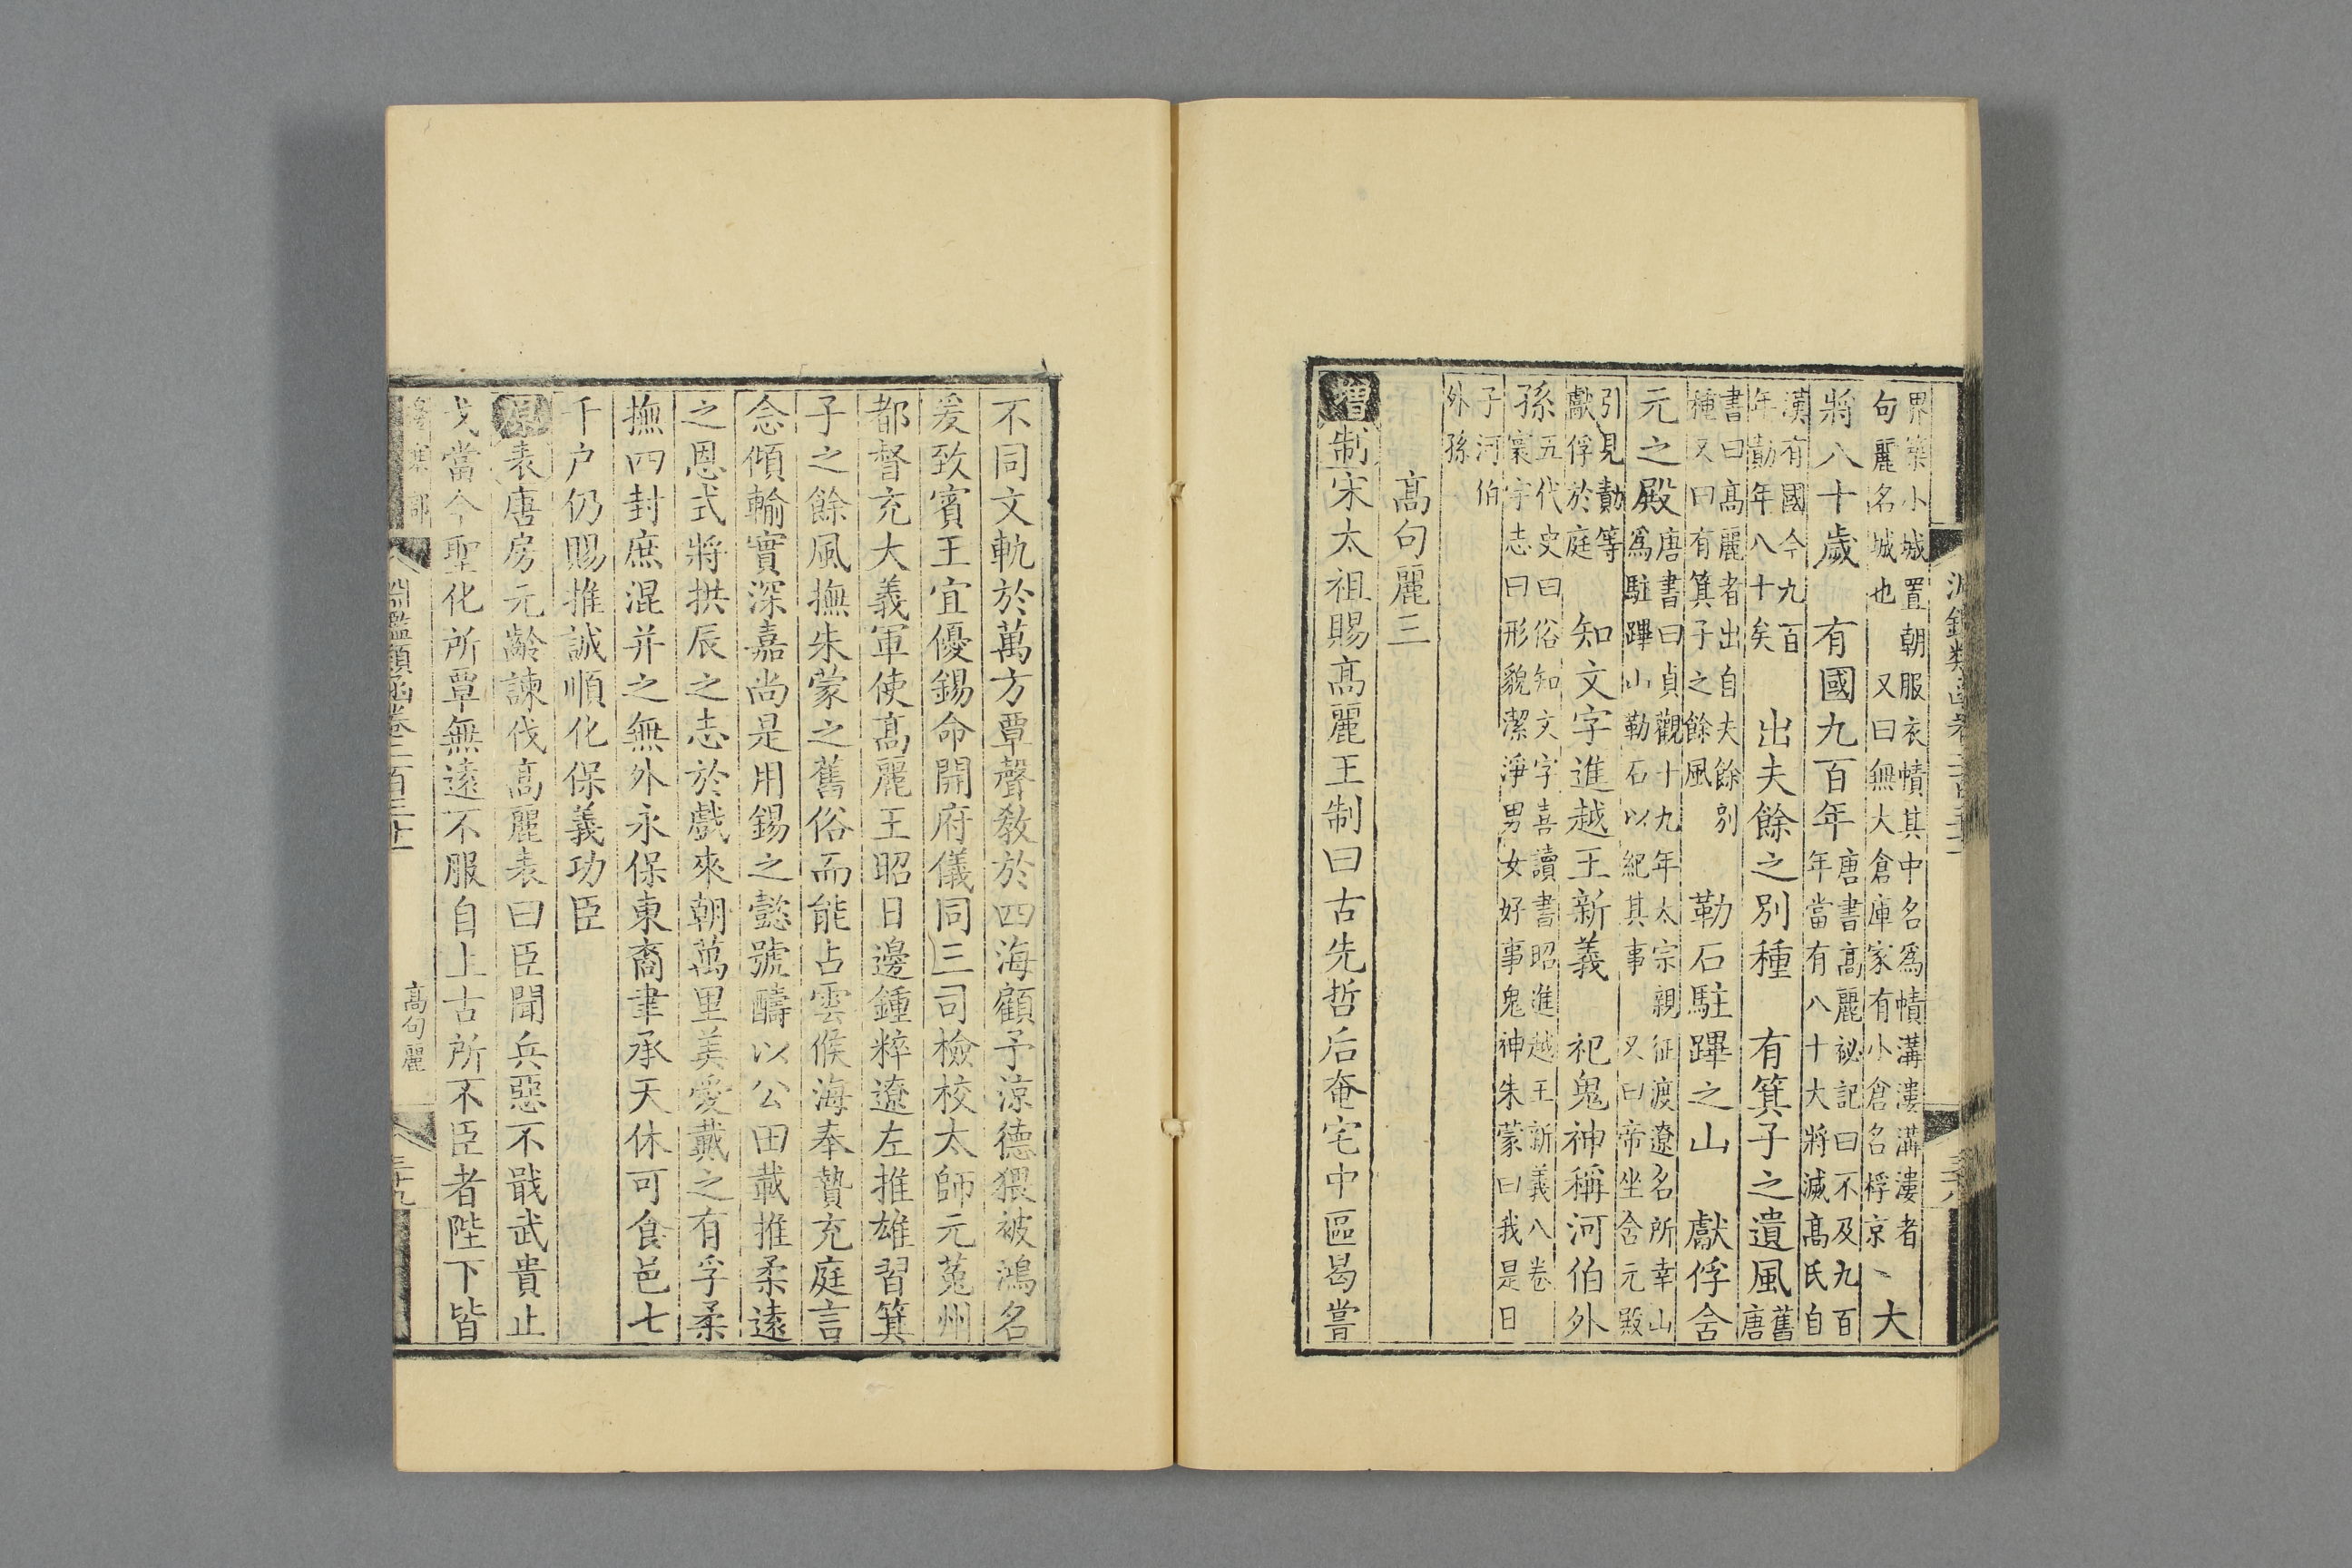 界築小城置朝服衣幘其中名爲幘溝漊溝漊者
句麗名城也　又曰無大倉庫家有小倉名桴京、大
將八十歲　有國九百年唐書高麗祕記曰不及九百
年當有八十大將滅高氏自
漢有國今九百
年勣年八十矣　出夫餘之別種　有箕子之遺風舊
唐
書曰高麗者出自夫餘別
種又曰有箕子之餘風　勒石駐蹕之山　獻俘含
元之殿唐書曰貞觀十九年太宗親征渡遼名所幸山
爲駐蹕山勒石以紀其事　又曰帝坐含元殿
引見勣等
獻俘於庭　知文字進越王新義　祀鬼神稱河伯外
孫五代史曰俗知文字喜讀書昭進越王新義八卷
寰宇志曰形貌潔淨男女好事鬼神朱蒙曰我是日
子河伯
外孫
高句麗三
增制宋太祖賜高麗王制曰古先哲后奄宅中區曷嘗
不同文軌於萬方覃聲教於四海顧予涼德猥被鴻名
爰致賓王宜優錫命開府儀同三司檢校太師元菟州
都督充大義軍使高麗王昭日邊鍾粹遼左推雄習箕
子之餘風撫朱蒙之舊俗而能占雲候海奉贄充庭言
念傾輸實深嘉尚是用錫之懿號疇以公田載推柔遠
之恩式將拱辰之志於戲來朝萬里美愛戴之有孚柔
撫四封庶混并之無外永保東裔聿承天休可食邑七
千户仍賜推誠順化保義功臣
原表唐房元齡諫伐高麗表曰臣聞兵惡不戢武貴止
戈當今聖化所覃無遠不服自上古所不臣者陛下皆
邊塞部
淵鑑類函卷二百三十一
高句麗
三十九